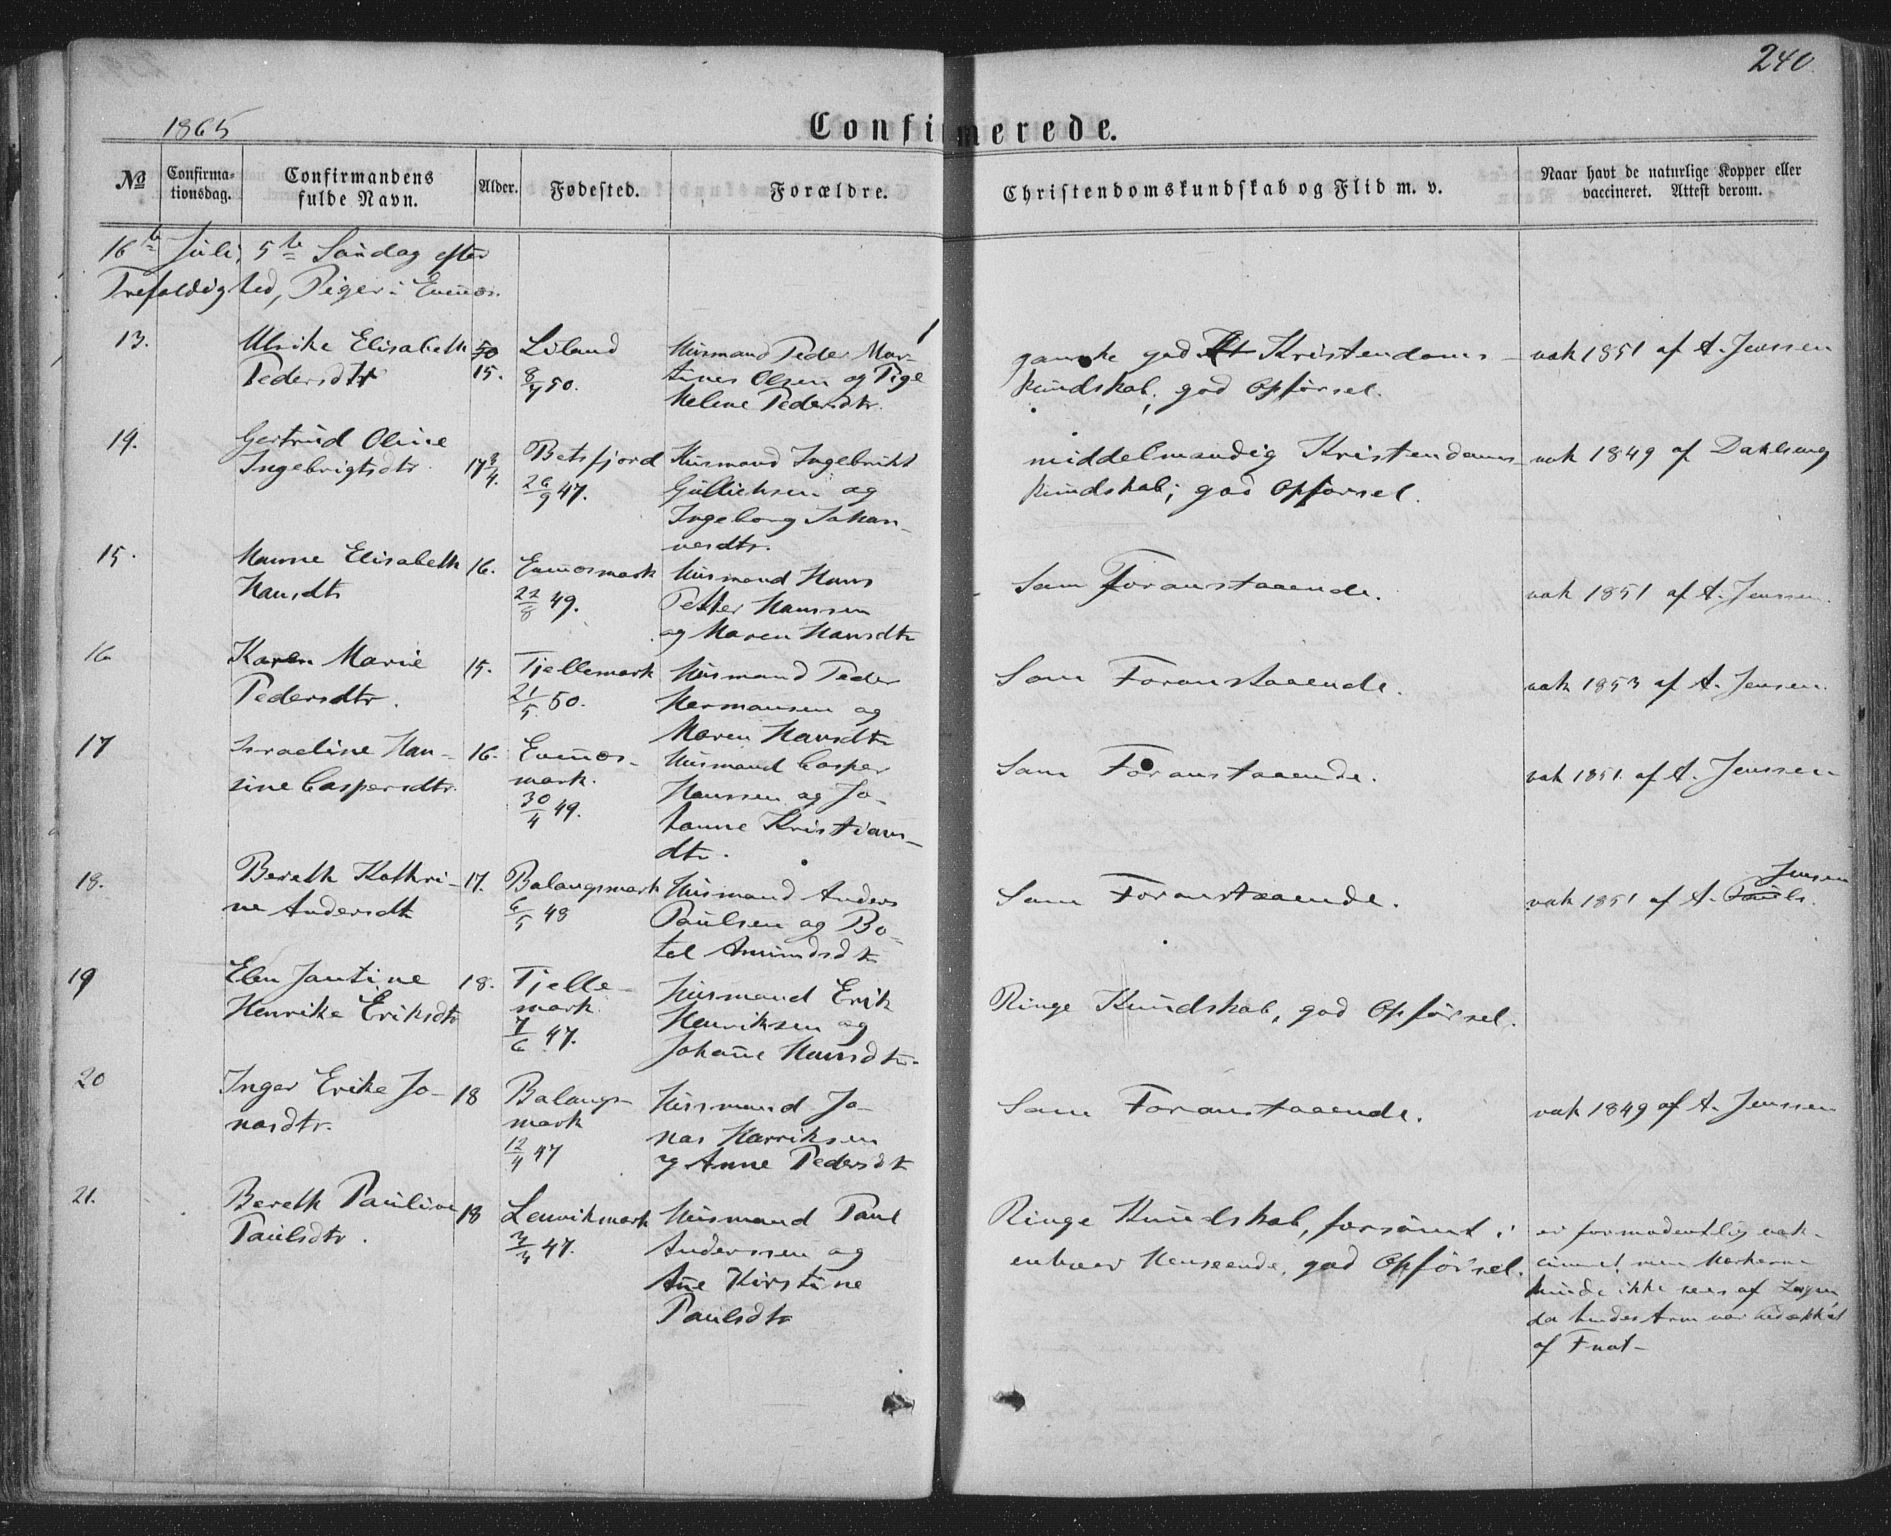 240
1865
Confirmerede.
№
Confirma-
tionsdag.
Confirmandens
fulde Navn.
Alder.
Fødested.
Forældre.
Christendomskundskab og Flid m. v.
Naar havt de naturlige Kopper eller
vaccineret. Attest derom.
16te Juli, 5te Søndag efter
Trefoldighed, Piger i Evenæs.
13.
Ulrike Elisabeth
Pedersdtr
15.
Liland
8/7 50.
Husmand Peder Mar-
tines Olsen og Pige
Helene Pedersdtr.
ganske god Kristendoms-
kundskab, god Opførsel.
vak 1851 af A. Jenssen
14.
Gertrud Oline
Ingebrigtsdtr.
17 3/4.
Botsfjord
26/9 47.
Husmand Ingebrikt
Gullichsen og
Ingeborg Johan-
nesdtr.
middelmaadig Kristendoms-
kundskab; god Opførsel.
vak 1849 af Dahlsaug
15.
Hanne Elisabeth
Hansdtr
16.
Evenæsmark
22/8 49.
Husmand Hans
Petter Hanssen
og Maren Hansdtr
Som Foranstaaende.
vak 1851 af A. Jenssen.
16
Karen Marie
Pedersdtr.
15.
Tjellemark
21/5 50.
Husmand Peder
Hermansen og
Maren Hansdtr
Som Foranstaaende.
vak 1853 af A. Jensen.
17
Israeline Han-
sine Caspersdtr.
16.
Evenæs-
mark.
30/4 49.
Husmand Casper
Hanssen og Jo-
hanne Kristians-
dtr.
Som Foranstaaende.
vak 1851 af A. Jenssen
18.
Bereth Kathri-
ne Andersdtr
17.
Balangsmark
6/5 48
Husmand Anders
Paulsen og Bo-
tel Amundsdtr
Som Foranstaaende.
Jensen
vak 1851 af A. Pauls.
19
Elen Jantine
Henrike Eriksdtr
18.
Tjelle-
mark.
7/6 47.
Husmand Erik
Henriksen og
Johanne Hansdtr.
Ringe Kundskab, god Opførsel.
20
Inger Erike Jo-
nasdtr.
18
Balangs-
mark
12/4 47
Husmand Jo-
nas Henriksen
og Anne Pedersdtr
Som Foranstaaende.
vak 1849 af A. Jenssen
21.
Bereth Pauline
Paulsdtr.
18
Lenvikmark
3/4 47.
Husmand Paul
Anderssen og
Ane Kirstine
Paulsdtr
Ringe Kundskab, forsømt i
enhver Henseende, god Opførsel.
er formodentlig vak-
cineret men Mærkerne
kunde ikke sees af Lægen
da hendes Arm var bedækket
af Fnat-